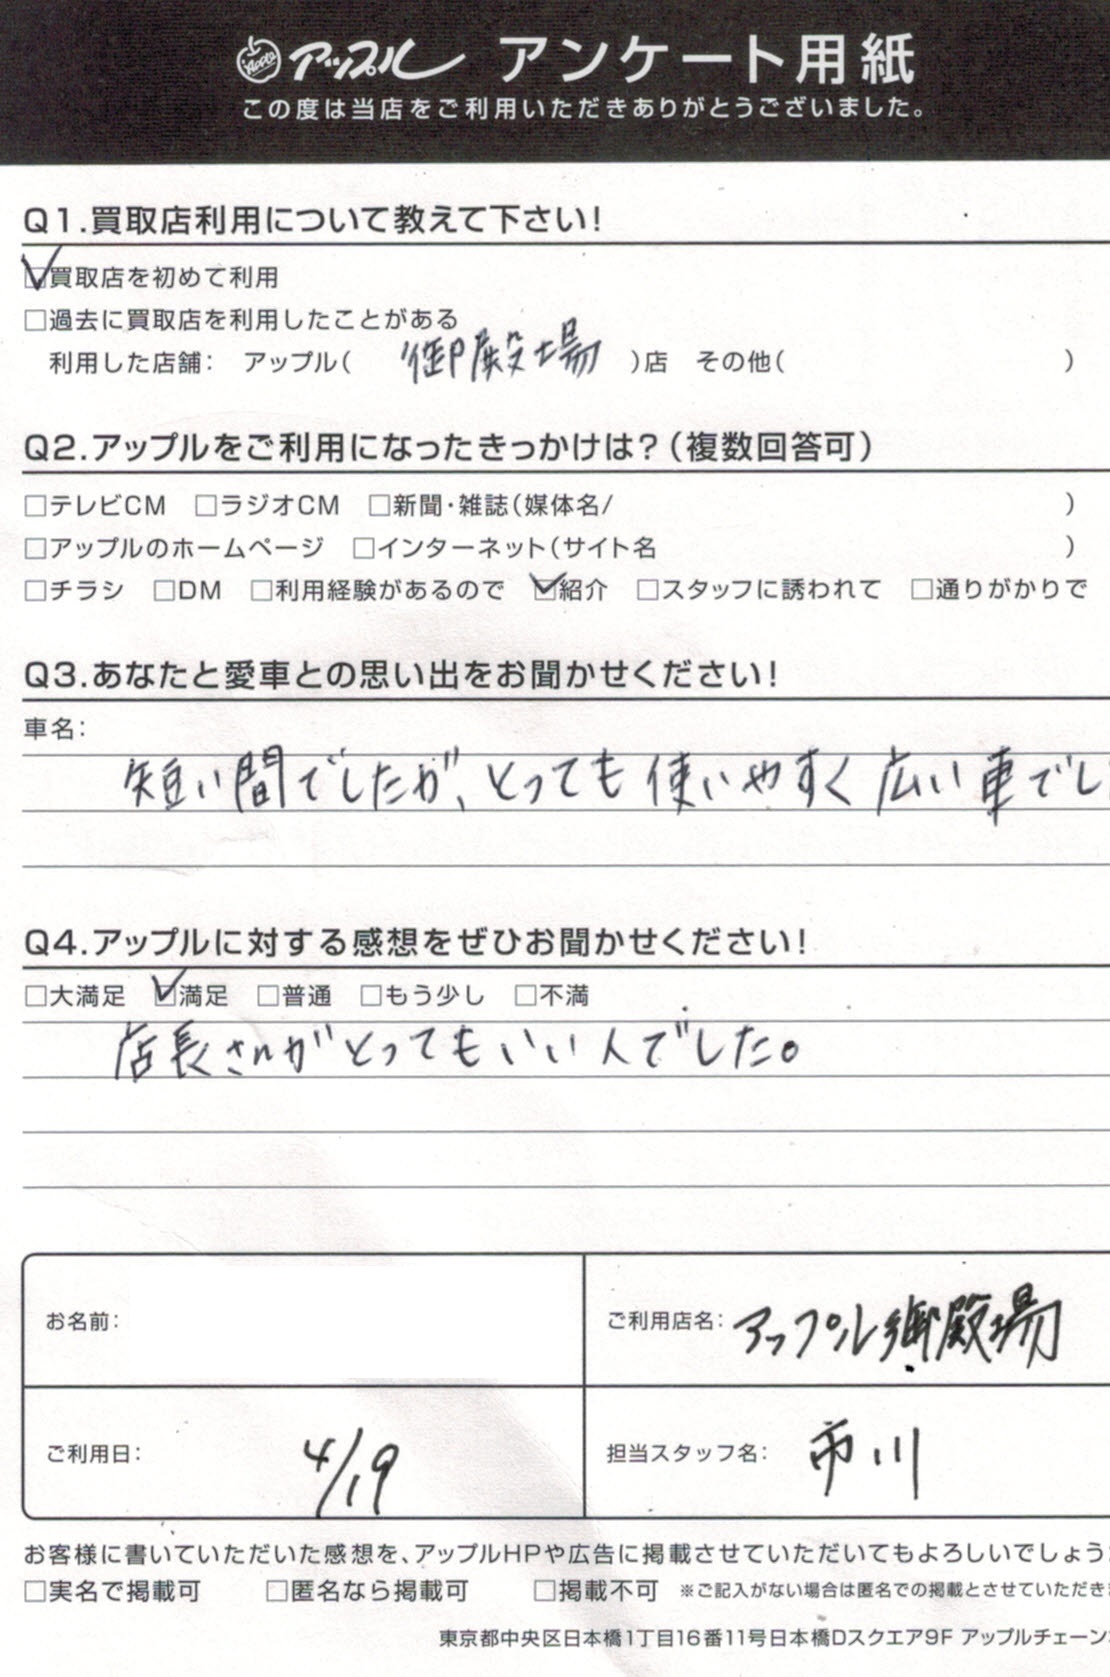 Apple アップル アンケート用紙
この度は当店をご利用いただきありがとうございました。
Q1.買取店利用について教えて下さい!
☑買取店を初めて利用
□過去に買取店を利用したことがある
利用した店舗: アップル( 御殿場 )店 その他( )
Q2.アップルをご利用になったきっかけは?(複数回答可)
□テレビCM □ラジオCM □新聞・雑誌(媒体名/ )
□アップルのホームページ □インターネット(サイト名 )
□チラシ □DM □利用経験があるので ☑紹介 □スタッフに誘われて □通りがかりで
Q3.あなたと愛車との思い出をお聞かせください!
車名:
短い間でしたが、とっても使いやすく広い車でし
Q4.アップルに対する感想をぜひお聞かせください!
□大満足 ☑満足 □普通 □もう少し □不満
店長さんがとってもいい人でした。
お名前:
ご利用店名: アップル御殿場
ご利用日: 4/19
担当スタッフ名: 市川
お客様に書いていただいた感想を、アップルHPや広告に掲載させていただいてもよろしいでしょう
□実名で掲載可 □匿名なら掲載可 □掲載不可 ※ご記入がない場合は匿名での掲載とさせていただき
東京都中央区日本橋1丁目16番11号日本橋Dスクエア9F アップルチェーン